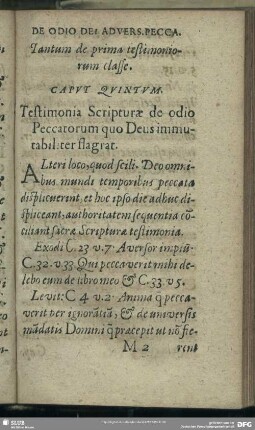 DE ODIO DEI ADVERS. PECCA.
Tantum de prima testimonio-
rum classe.
CAPVT QVINTVM.
Testimonia Scripturæ de odio
Peccatorum quo Deus immu-
tabiliter flagrat.
ALteri loco, quod scili. Deo omni-
bus mundi temporibus peccata
displicuerint, et hoc ipso die adhuc di-
spliceant, authoritatem sequentia cō-
ciliant sacræ Scripturæ testimonia.
Exodi C. 23 v. 7. Aversor impiū
C. 32. v 33. Qui peccaverit mihi de-
lebo eum de libro meo & C. 33 v 5.
Levit: C 4 v. 2. Anima q̄ pecca-
verit per ignorātiā, & de universis
mādatis Domini q̄ præcepit ut nō fie-
M 2 rent
SLUB
DFG